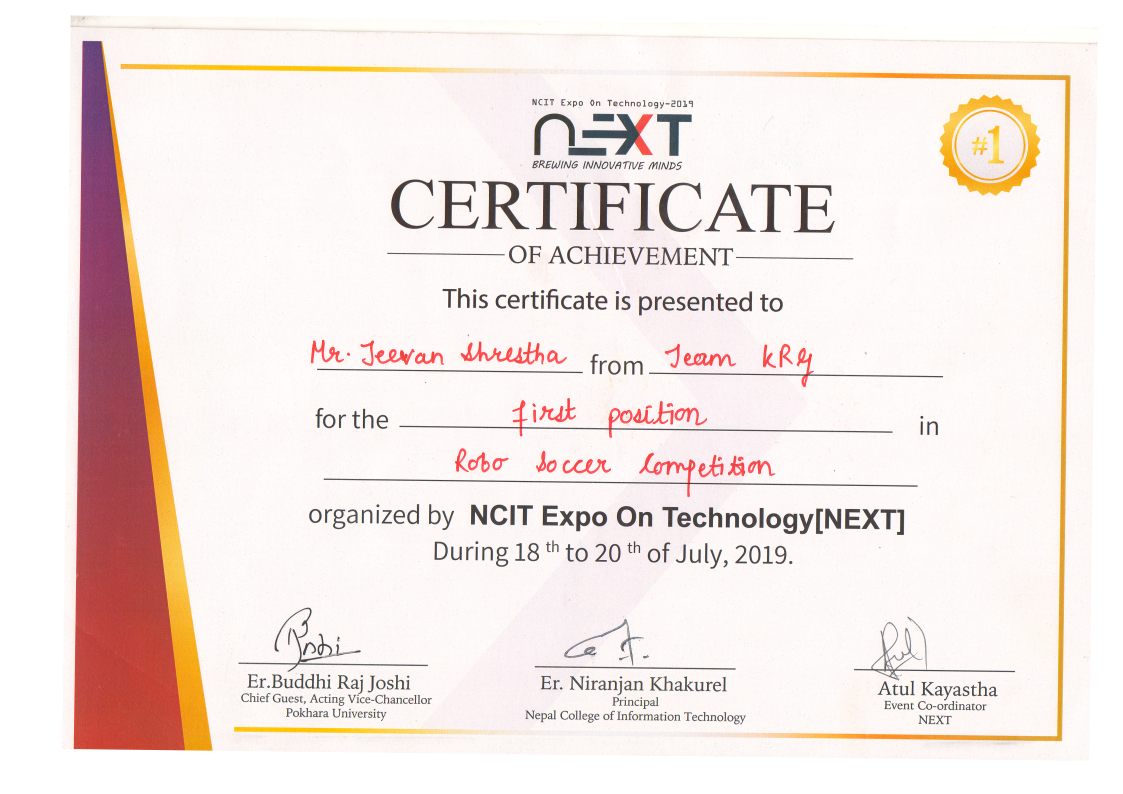 NCIT Expo On Technology-2019
NEXT
BREWING INNOVATIVE MINDS
#1
CERTIFICATE
OF ACHIEVEMENT
This certificate is presented to
Mr. Jeevan Shrestha from Team KRY
for the first position in
Robo Soccer Competition
organized by NCIT Expo On Technology[NEXT]
During 18 th to 20 th of July, 2019.
Er.Buddhi Raj Joshi
Chief Guest, Acting Vice-Chancellor
Pokhara University
Er. Niranjan Khakurel
Principal
Nepal College of Information Technology
Atul Kayastha
Event Co-ordinator
NEXT